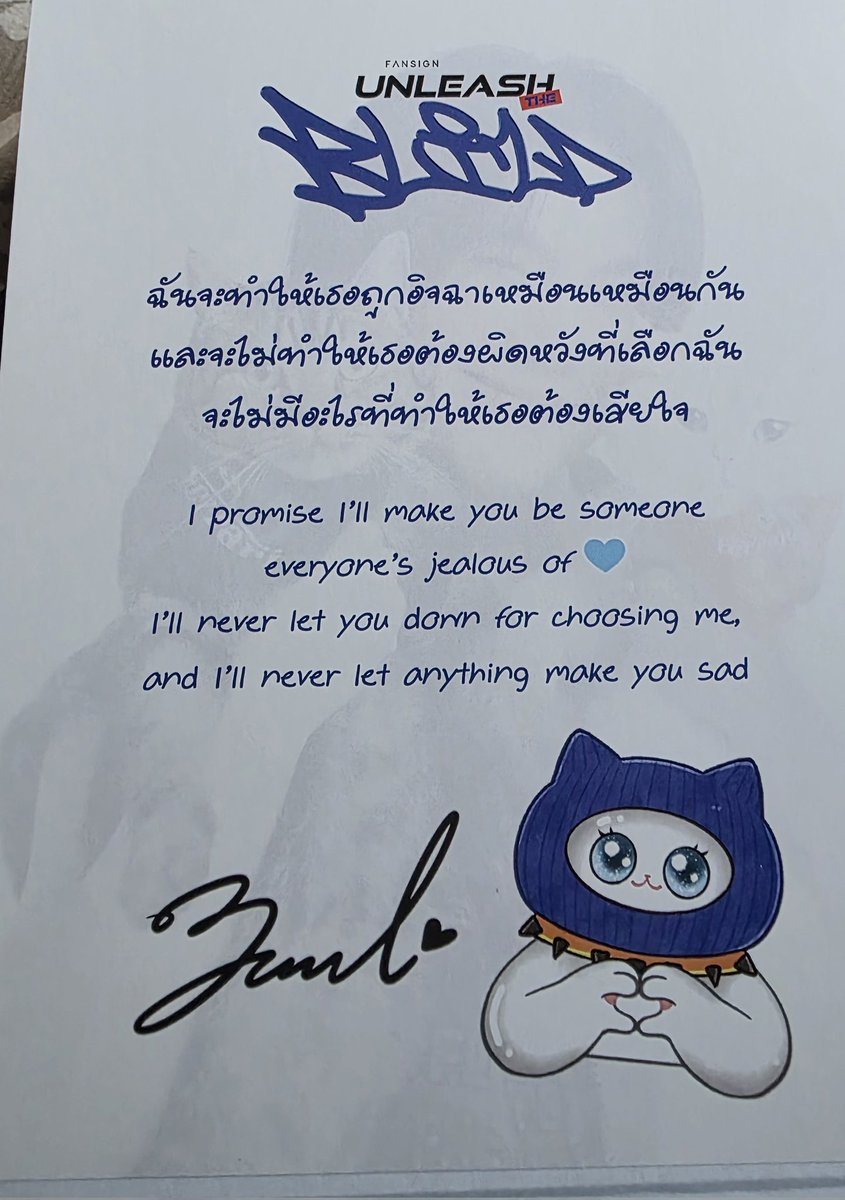 FANSIGN
UNLEASH
THE
ฉันจะทำให้เธอถูกอิจฉาเหมือนเหมือนกัน
และจะไม่ทำให้เธอต้องผิดหวังที่เลือกฉัน
จะไม่มีอะไรที่ทำให้เธอต้องเสียใจ
I promise I'll make you be someone
everyone's jealous of 🩵
I'll never let you down for choosing me,
and I'll never let anything make you sad